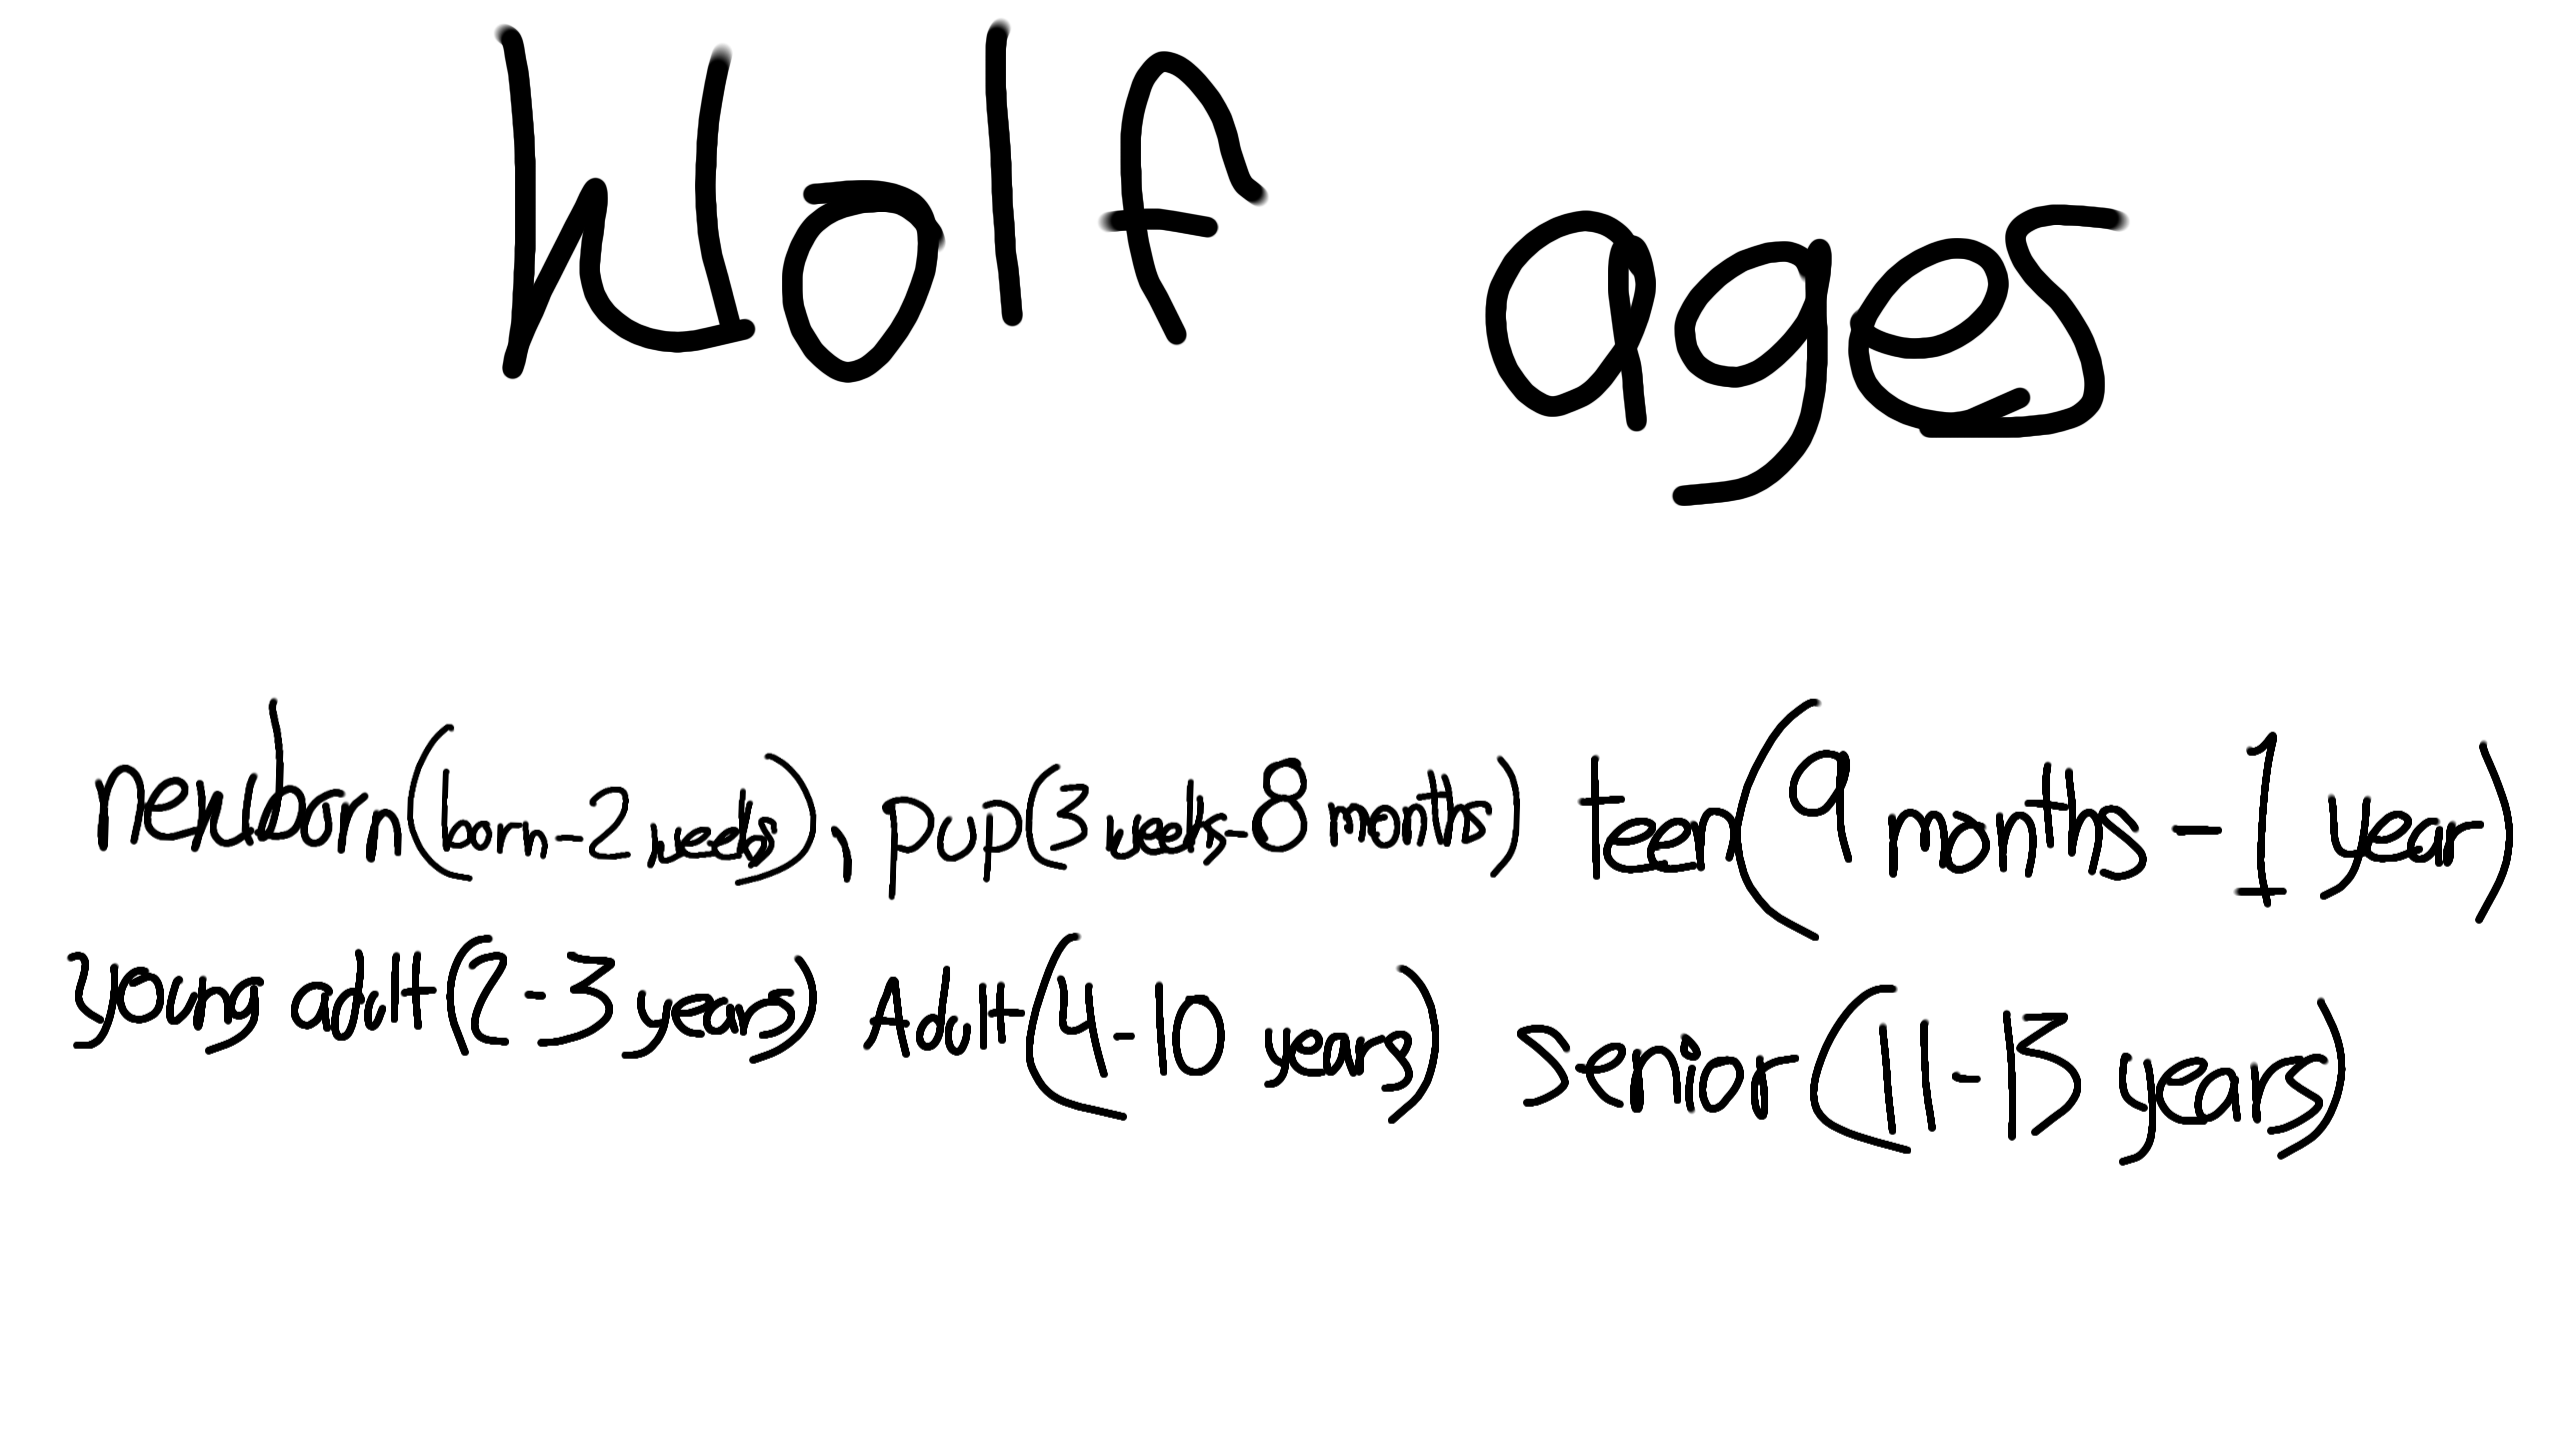 Wolf ages
newborn(born-2 weeks), pup(3 weeks-8 months) teen(9 months-1 year)
young adult(2-3 years) Adult(4-10 years) senior(11-13 years)